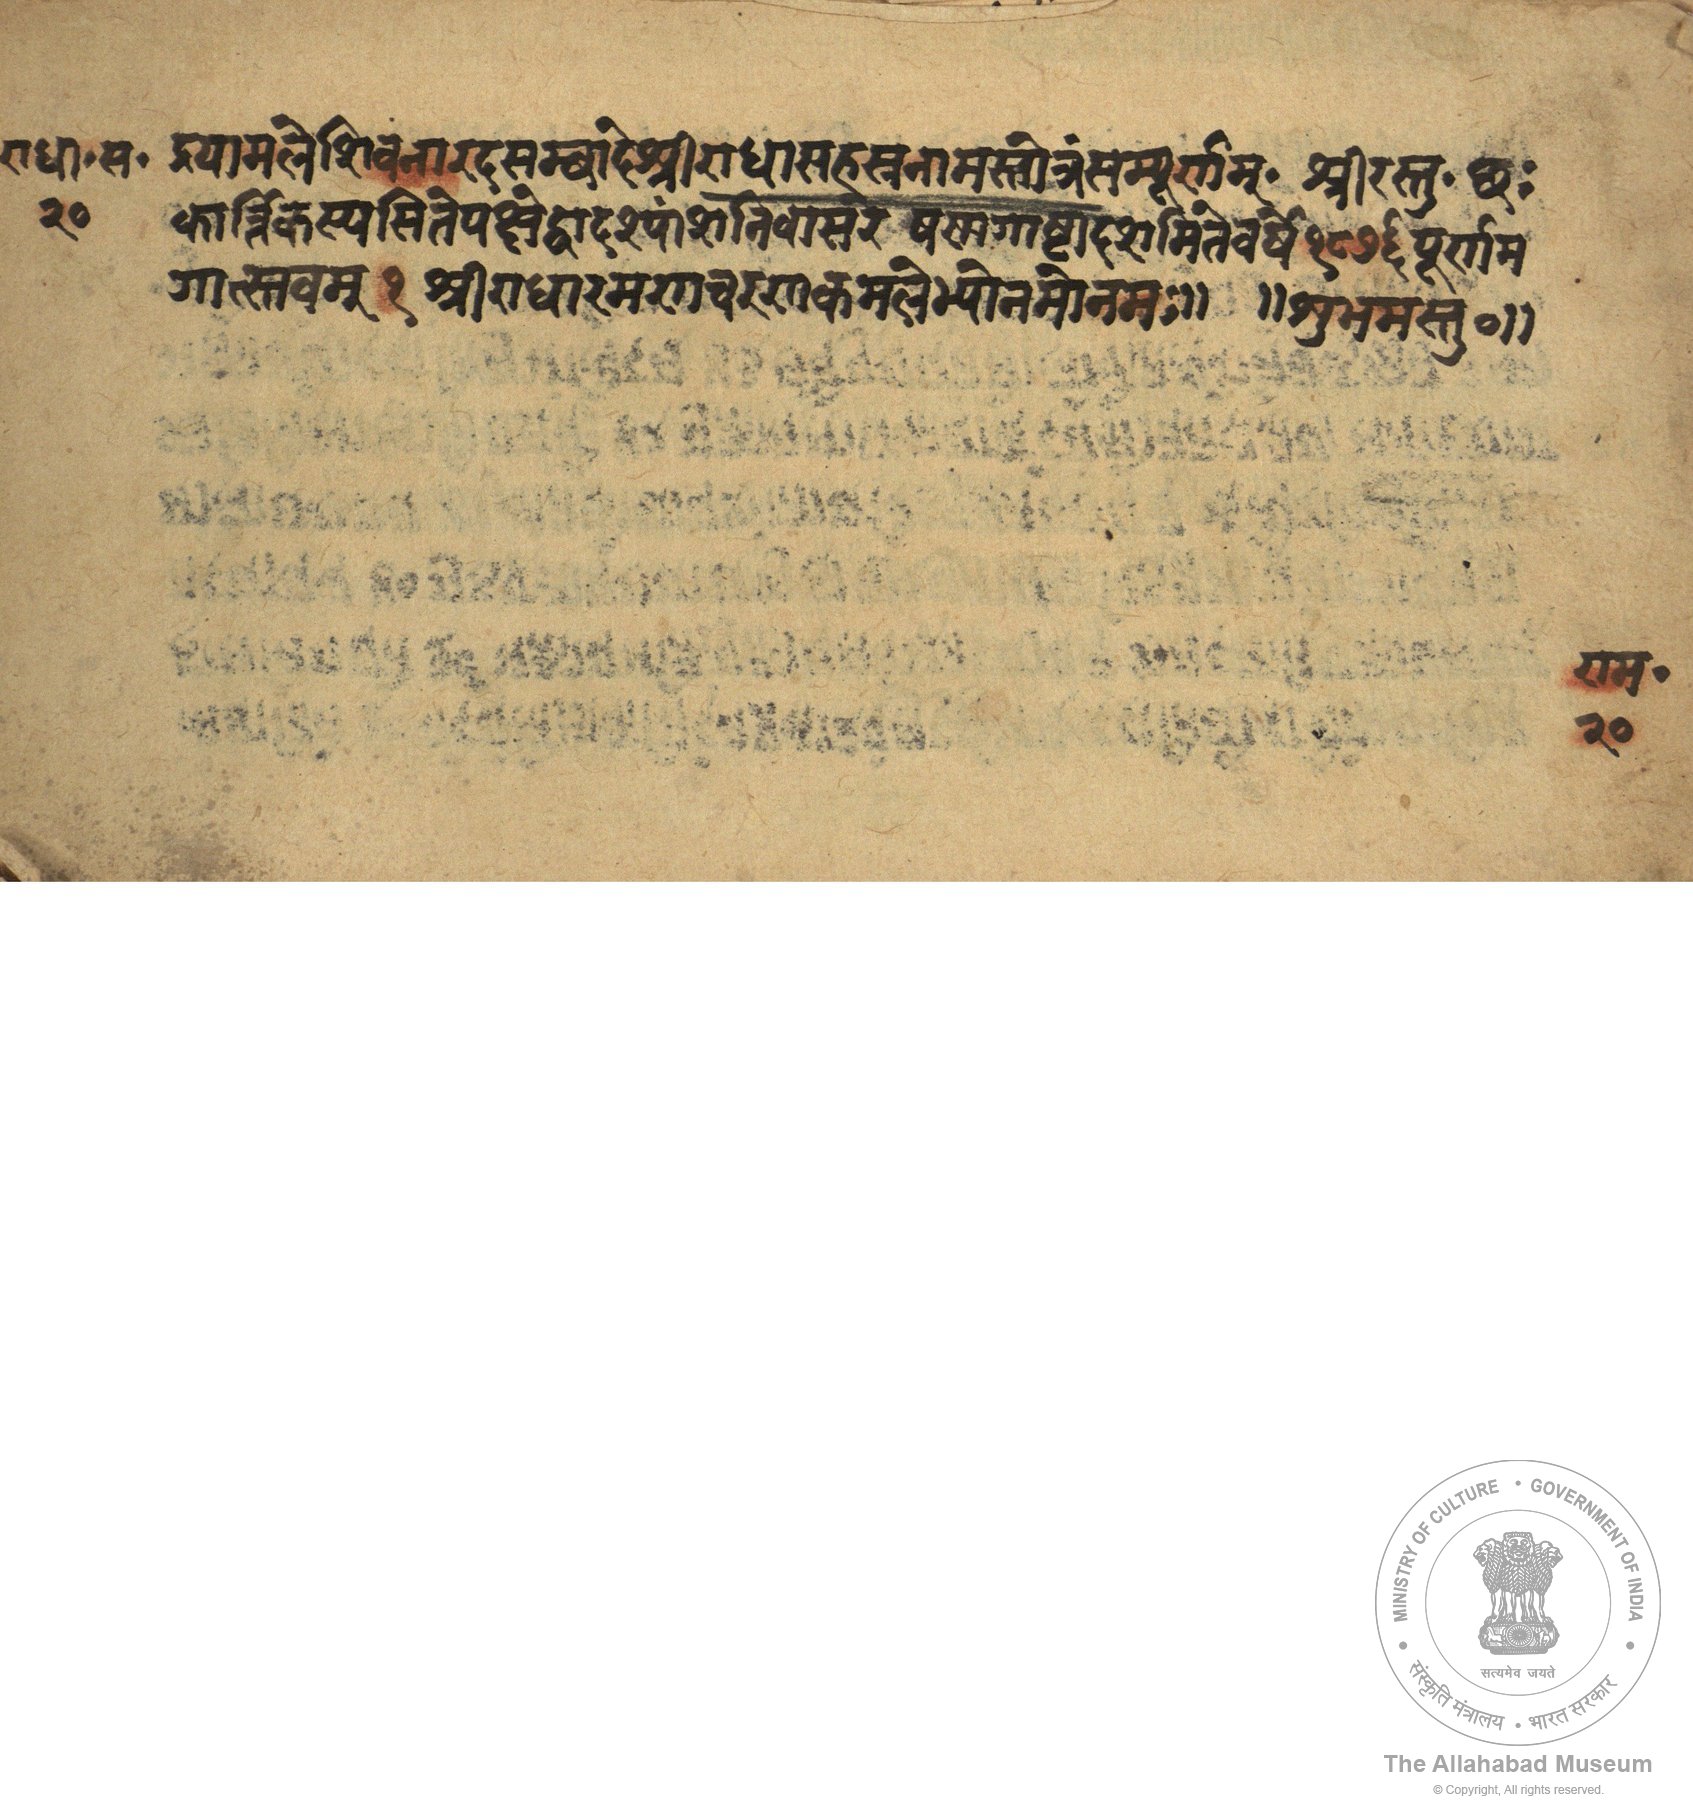 राधा॰स॰
२०
द्रयामलेशिवनारदसम्बादेश्रीराधासहस्रनामस्तोत्रंसम्पूर्णम्॰ श्रीरस्तु॰ छः
कार्त्तिकस्यसितेपक्षेद्वादश्यांशनिवासरे षण्नगाष्टादशमितेवर्षे १८७६ पूर्णम
गात्स्तवम् १ श्रीराधारमणचरणकमलेभ्योनमोनमः॥ ॥शुभमस्तु०॥
राम॰
२०
MINISTRY OF CULTURE • GOVERNMENT OF INDIA
सत्यमेव जयते
संस्कृति मंत्रालय • भारत सरकार
The Allahabad Museum
© Copyright, All rights reserved.